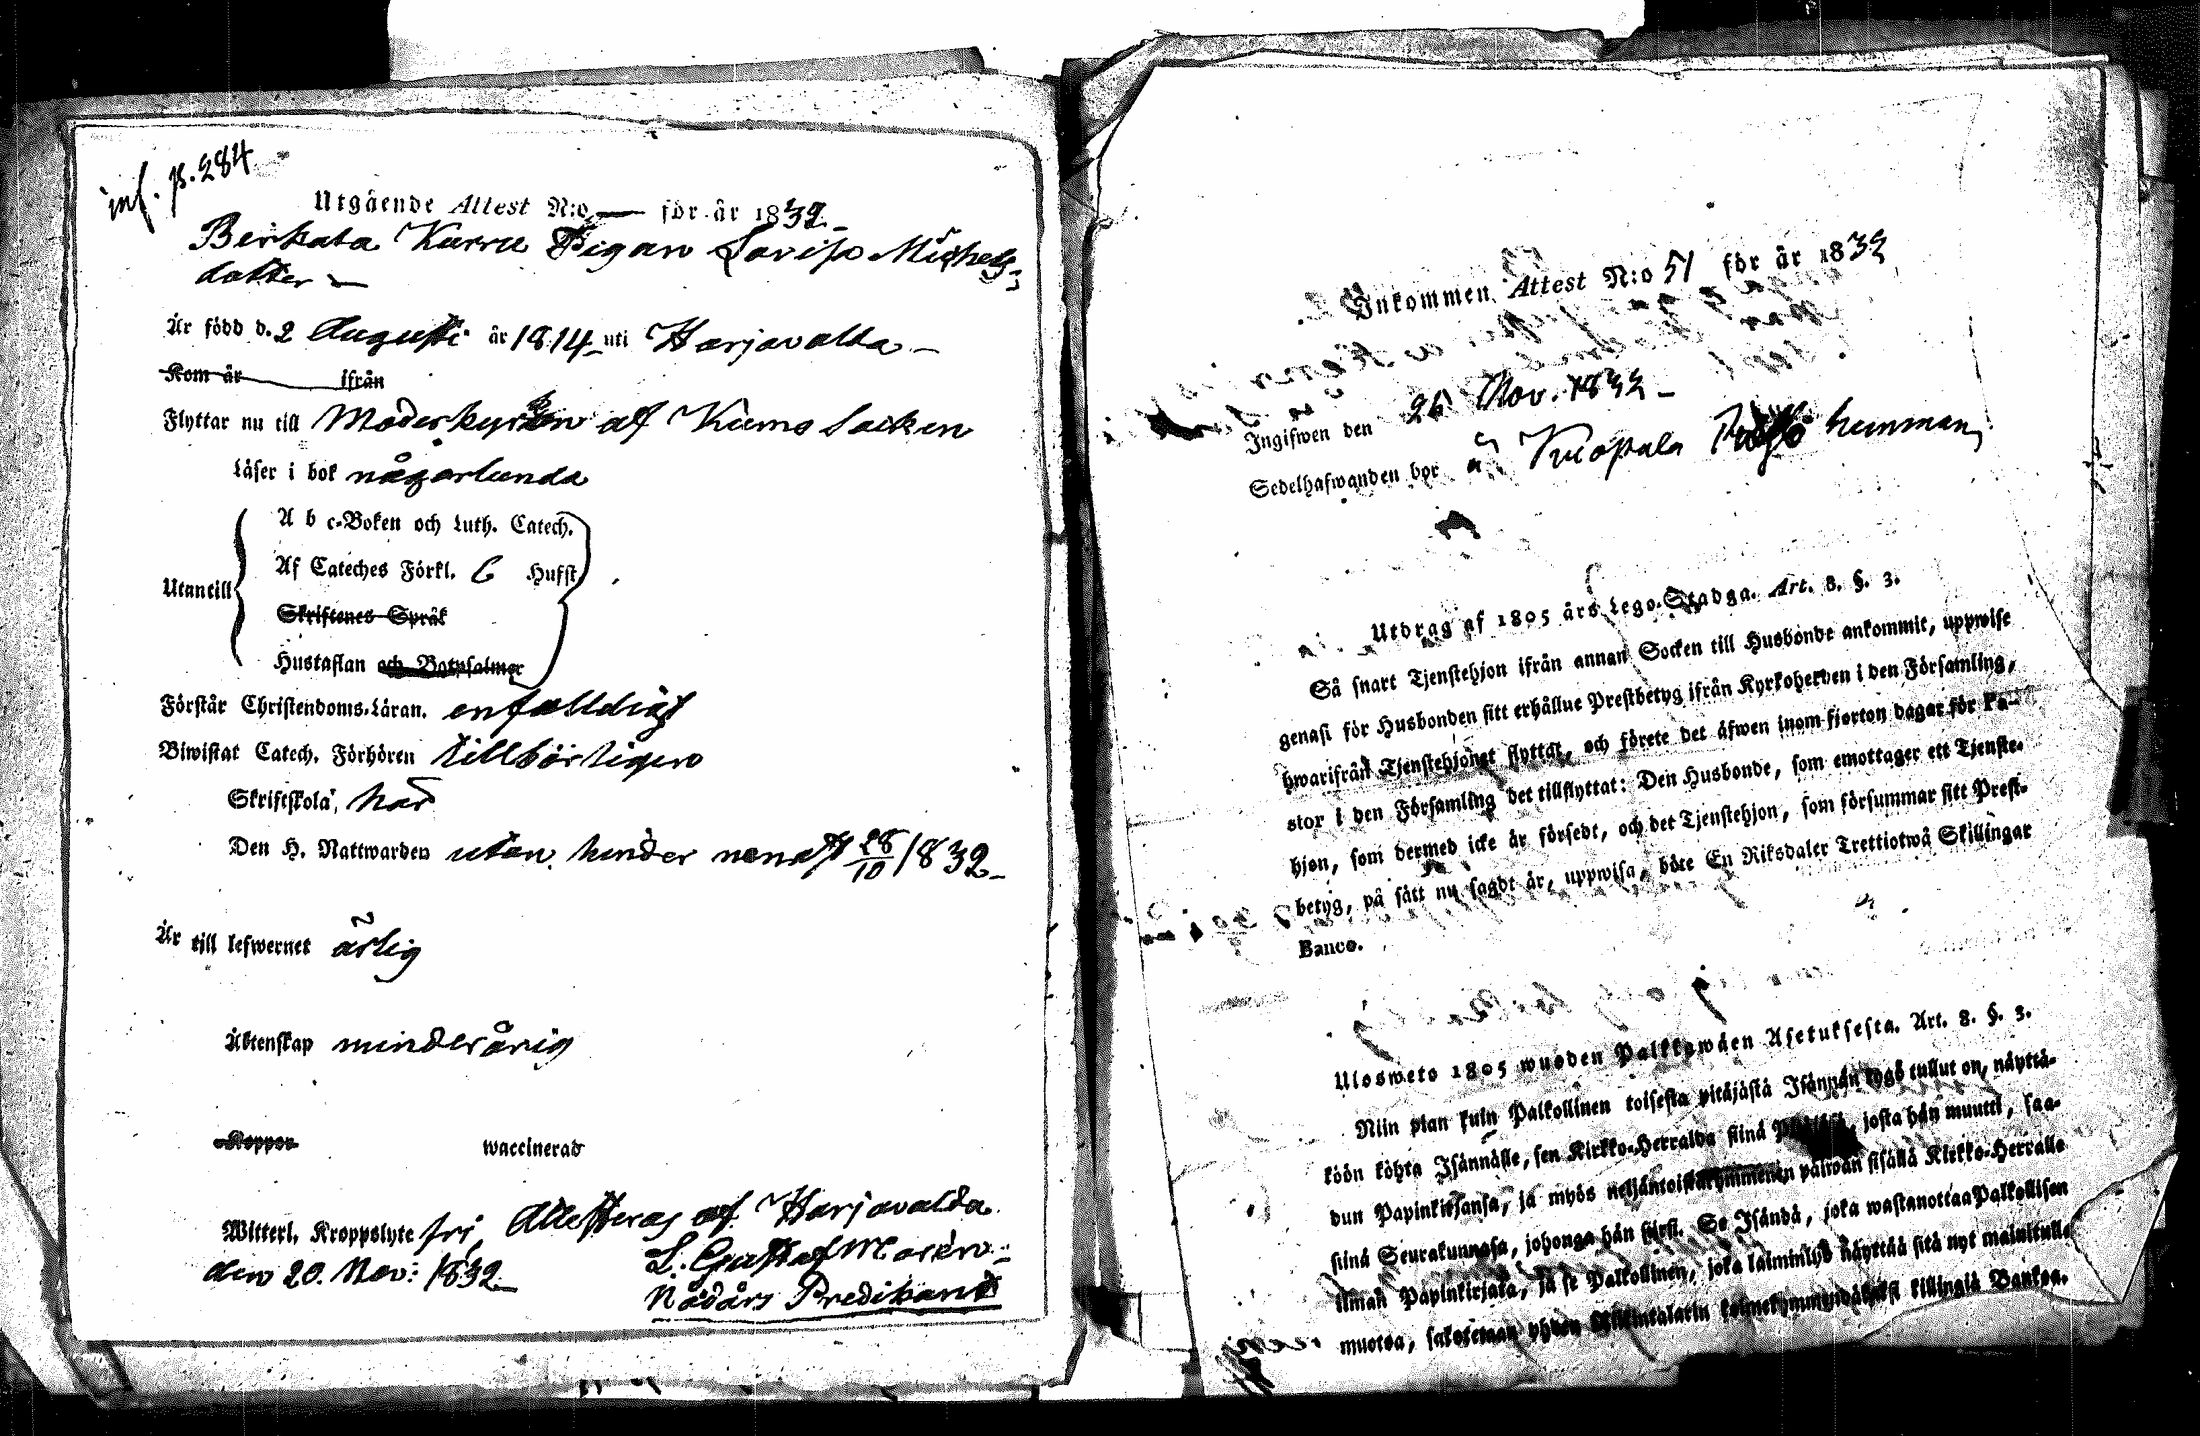 inf. p. 284
Utgående Attest N:o — för år 1832.
Berkala Karru Pigan Lovisa Michels-
dotter
Är född d. 2 Augusti år 1814 uti Harjavalda
Kom år ifrån
Flyttar nu till Moderkyrkan af Kumo Socken
Läser i bok någorlunda
A b c-Boken och Luth. Catech.
Af Cateches Förkl. 6 Hufst.
Utantill
Skriftenes Språk
Hustaflan och Botpsalmer
Förstår Christendoms-Läran. enfaldigt
Biwistat Catech. Förhören tillbörligen
Skriftskola, har
Den H. Nattwarden utan hinder senast 28/10 1832
Är till lefwernet ärlig
Äktenskap minderårig
Koppor waccinerad
Witterl. Kroppslyte fri, Attesteras af Harjavalda
den 20. Nov: 1832 L. Gustaf Morén
Nådårs Predikant
Inkommen Attest N:o 51 för år 1832
Ingifwen den 26 Nov. 1832
Sedelhafwanden bor å Kuopala hemman
Utdrag af 1805 års Lego-Stadga. Art. 8. §. 3.
Så snart Tjenstehjon ifrån annan Socken till Husbonde ankommit, uppwise
genast för Husbonden sitt erhållne Prestbetyg ifrån Kyrkoherden i den Församling,
hwarifrån Tjenstehjonet flyttat, och förete det äfwen inom fjorton dagar för Pa-
stor i den Församling det tillflyttat: Den Husbonde, som emottager ett Tjenste-
hjon, som dermed icke är försedt, och det Tjenstehjon, som försummar sitt Prest-
betyg, på sätt nu sagdt är, uppwisa, böte En Riksdaler Trettiotwå Skillingar
Banco.
Ulosweto 1805 wuoden Palkkawäen Asetuksesta. Art. 8. §. 3.
Niin pian kuin Palkollinen toisesta pitäjästä Isännän tygö tullut on, näyttä-
köön kohta Isännälle, sen Kirkko-Herralda siinä Pitäjäsä, josta hän muutti, saa-
dun Papinkirjansa, ja myös neljäntoistakymmenen päiwän sisällä Kirkko-Herralle
siinä Seurakunnasa, johonga hän siirsi. Se Isändä, joka wastanottaa Palkollisen
ilman Papinkirjata, ja se Palkollinen, joka laiminlyö näyttää sitä nyt mainitulla
muotoa, sakotetaan yhden Riksintalarin kolmekymmendäkaksi killingiä Bankoa.